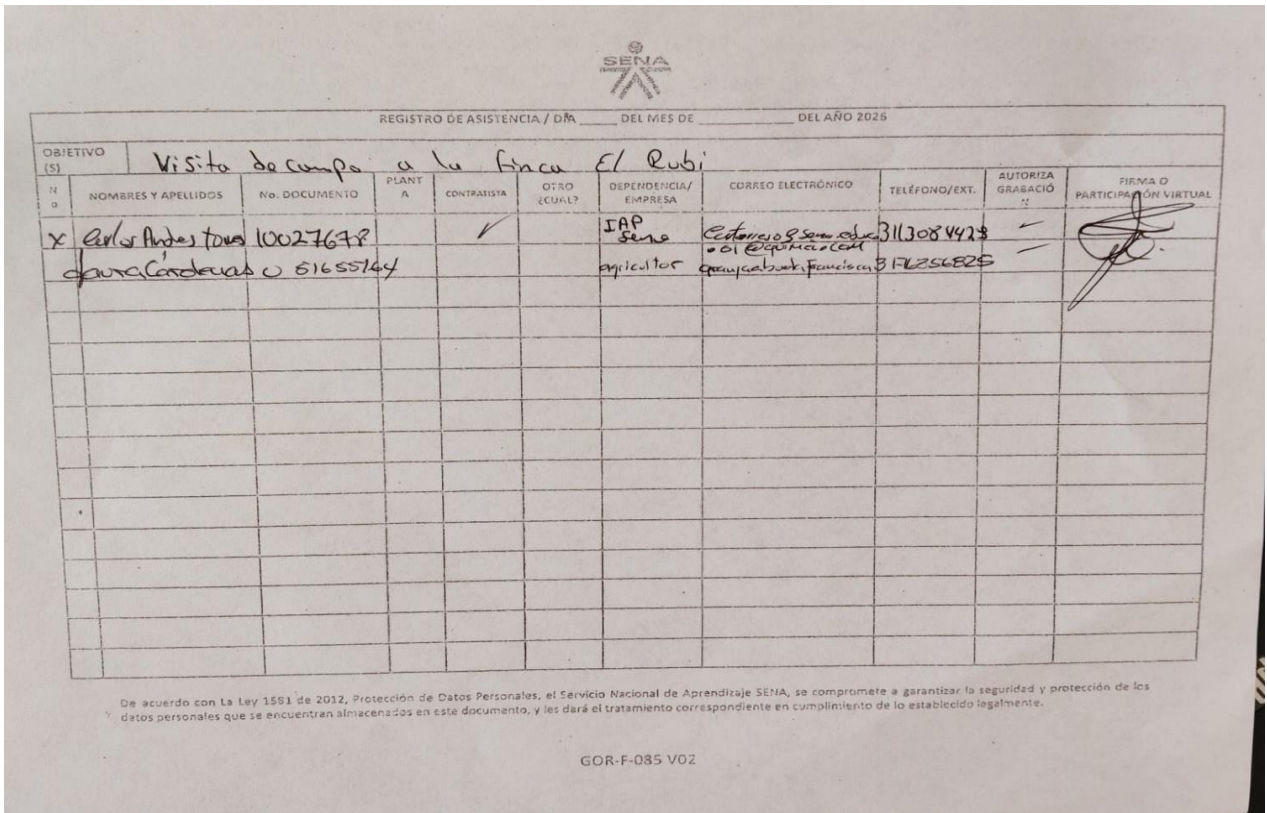 SENA
REGISTRO DE ASISTENCIA / DÍA _____ DEL MES DE ____________ DEL AÑO 2026
OBJETIVO (S) Visita de campo a la finca El Rubi
N o NOMBRES Y APELLIDOS No. DOCUMENTO PLANT A CONTRATISTA OTRO ¿CUAL? DEPENDENCIA/ EMPRESA CORREO ELECTRÓNICO TELÉFONO/EXT. AUTORIZA GRABACIÓ N FIRMA O PARTICIPACIÓN VIRTUAL
x Carlos Andres 10027678 ✓ IAP Sena 3113084428
Laura Cárdenas U 51655764 agricultor 3176256825
De acuerdo con La Ley 1581 de 2012, Protección de Datos Personales, el Servicio Nacional de Aprendizaje SENA, se compromete a garantizar la seguridad y protección de los
datos personales que se encuentran almacenados en este documento, y les dará el tratamiento correspondiente en cumplimiento de lo establecido legalmente.
GOR-F-085 V02